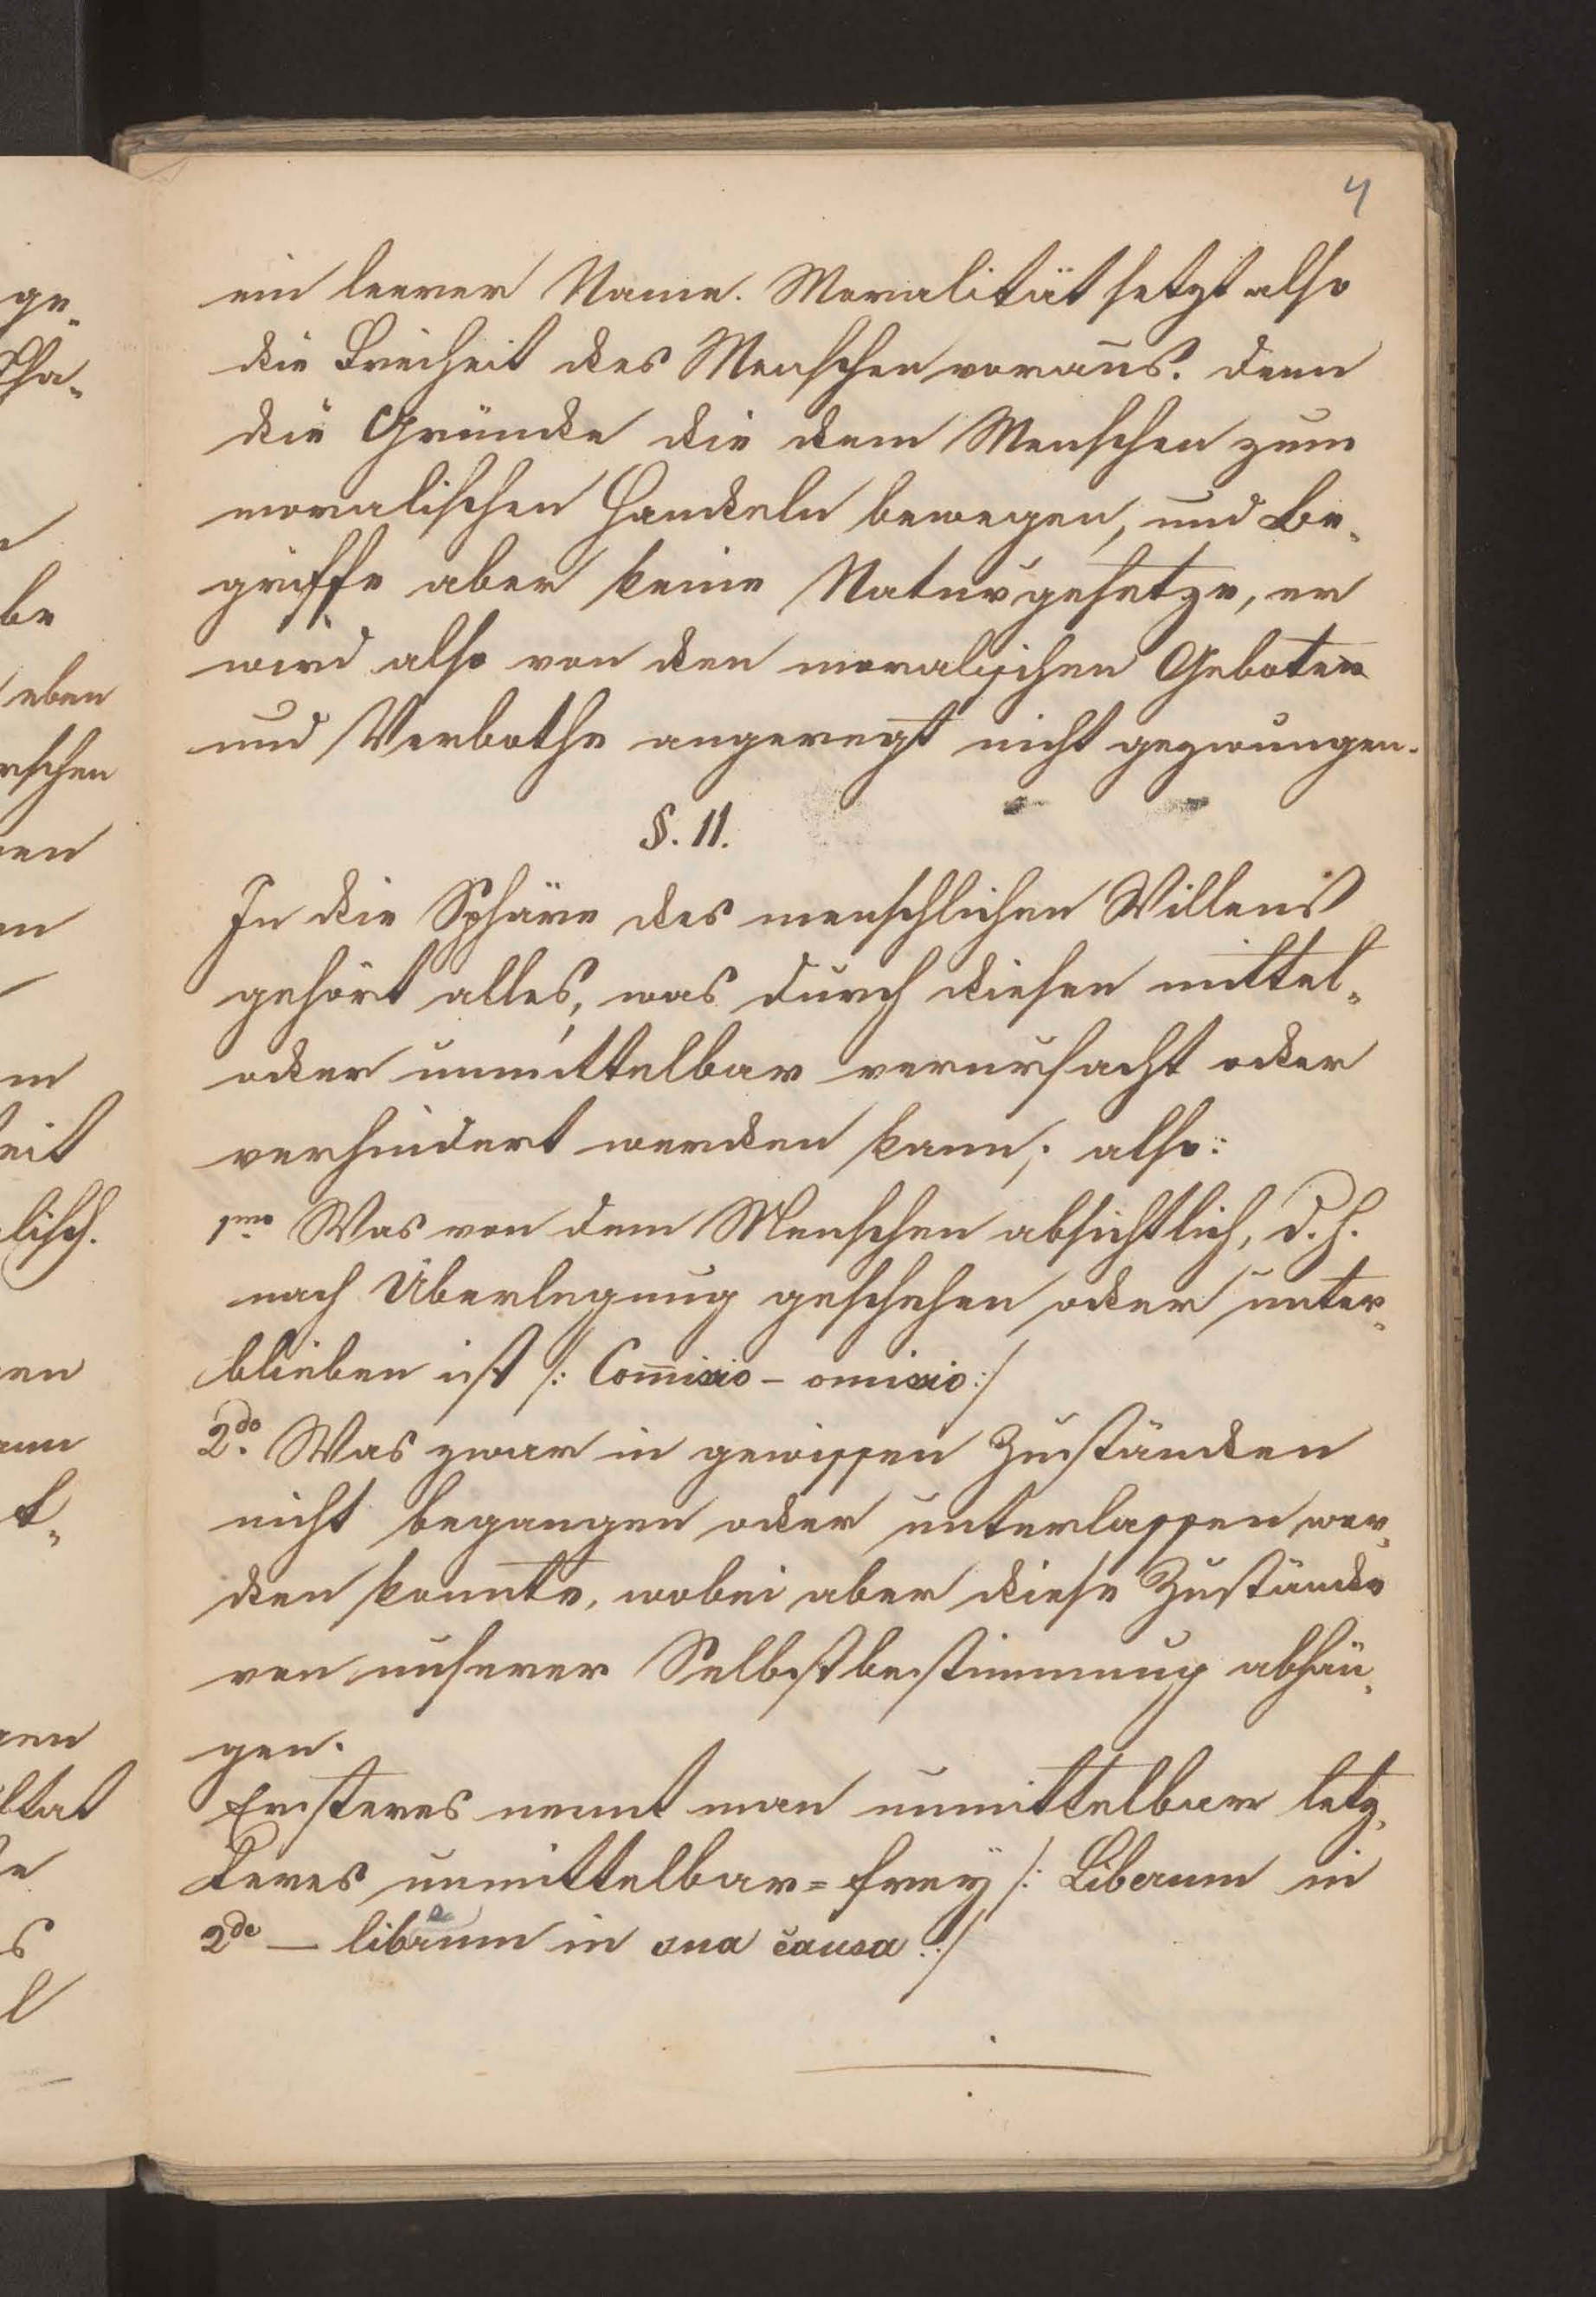 4
ein leerer Name. Moralität setzt also
die Freiheit des Menschen voraus. denn
die Gründe die dem Menschen zum
moralischen Handeln bewegen, und Be-
griffe aber keine Naturgesetze, er
wird also von den moralischen Geboten
und Verbothe angeregt nicht gezwungen.
§. 11.
In die Sphäre des menschlichen Willens
gehört alles, was durch diesen mittel-
oder unmittelbar verursacht oder
verhindert werden kann; also:
1mo Was von dem Menschen absichtlich, d. h.
nach Überlegung geschehen oder unter-
blieben ist /: Com̅issio – omissio :/
2do. Was zwar in gewissen Zuständen
nicht begangen oder unterlassen wer-
den konnte, wobei aber diese Zustände
von unserer Selbstbestimmung abhän-
gen.
Ersteres nennt man unmittelbar letz-
teres unmittelbar=frey /: Liberum in
2do — librum in sua causa :/